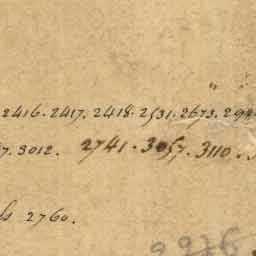 2416. 2417. 2418. 2531. 2673. 294
7. 3012. 2741. 3057. 3110.
2760.